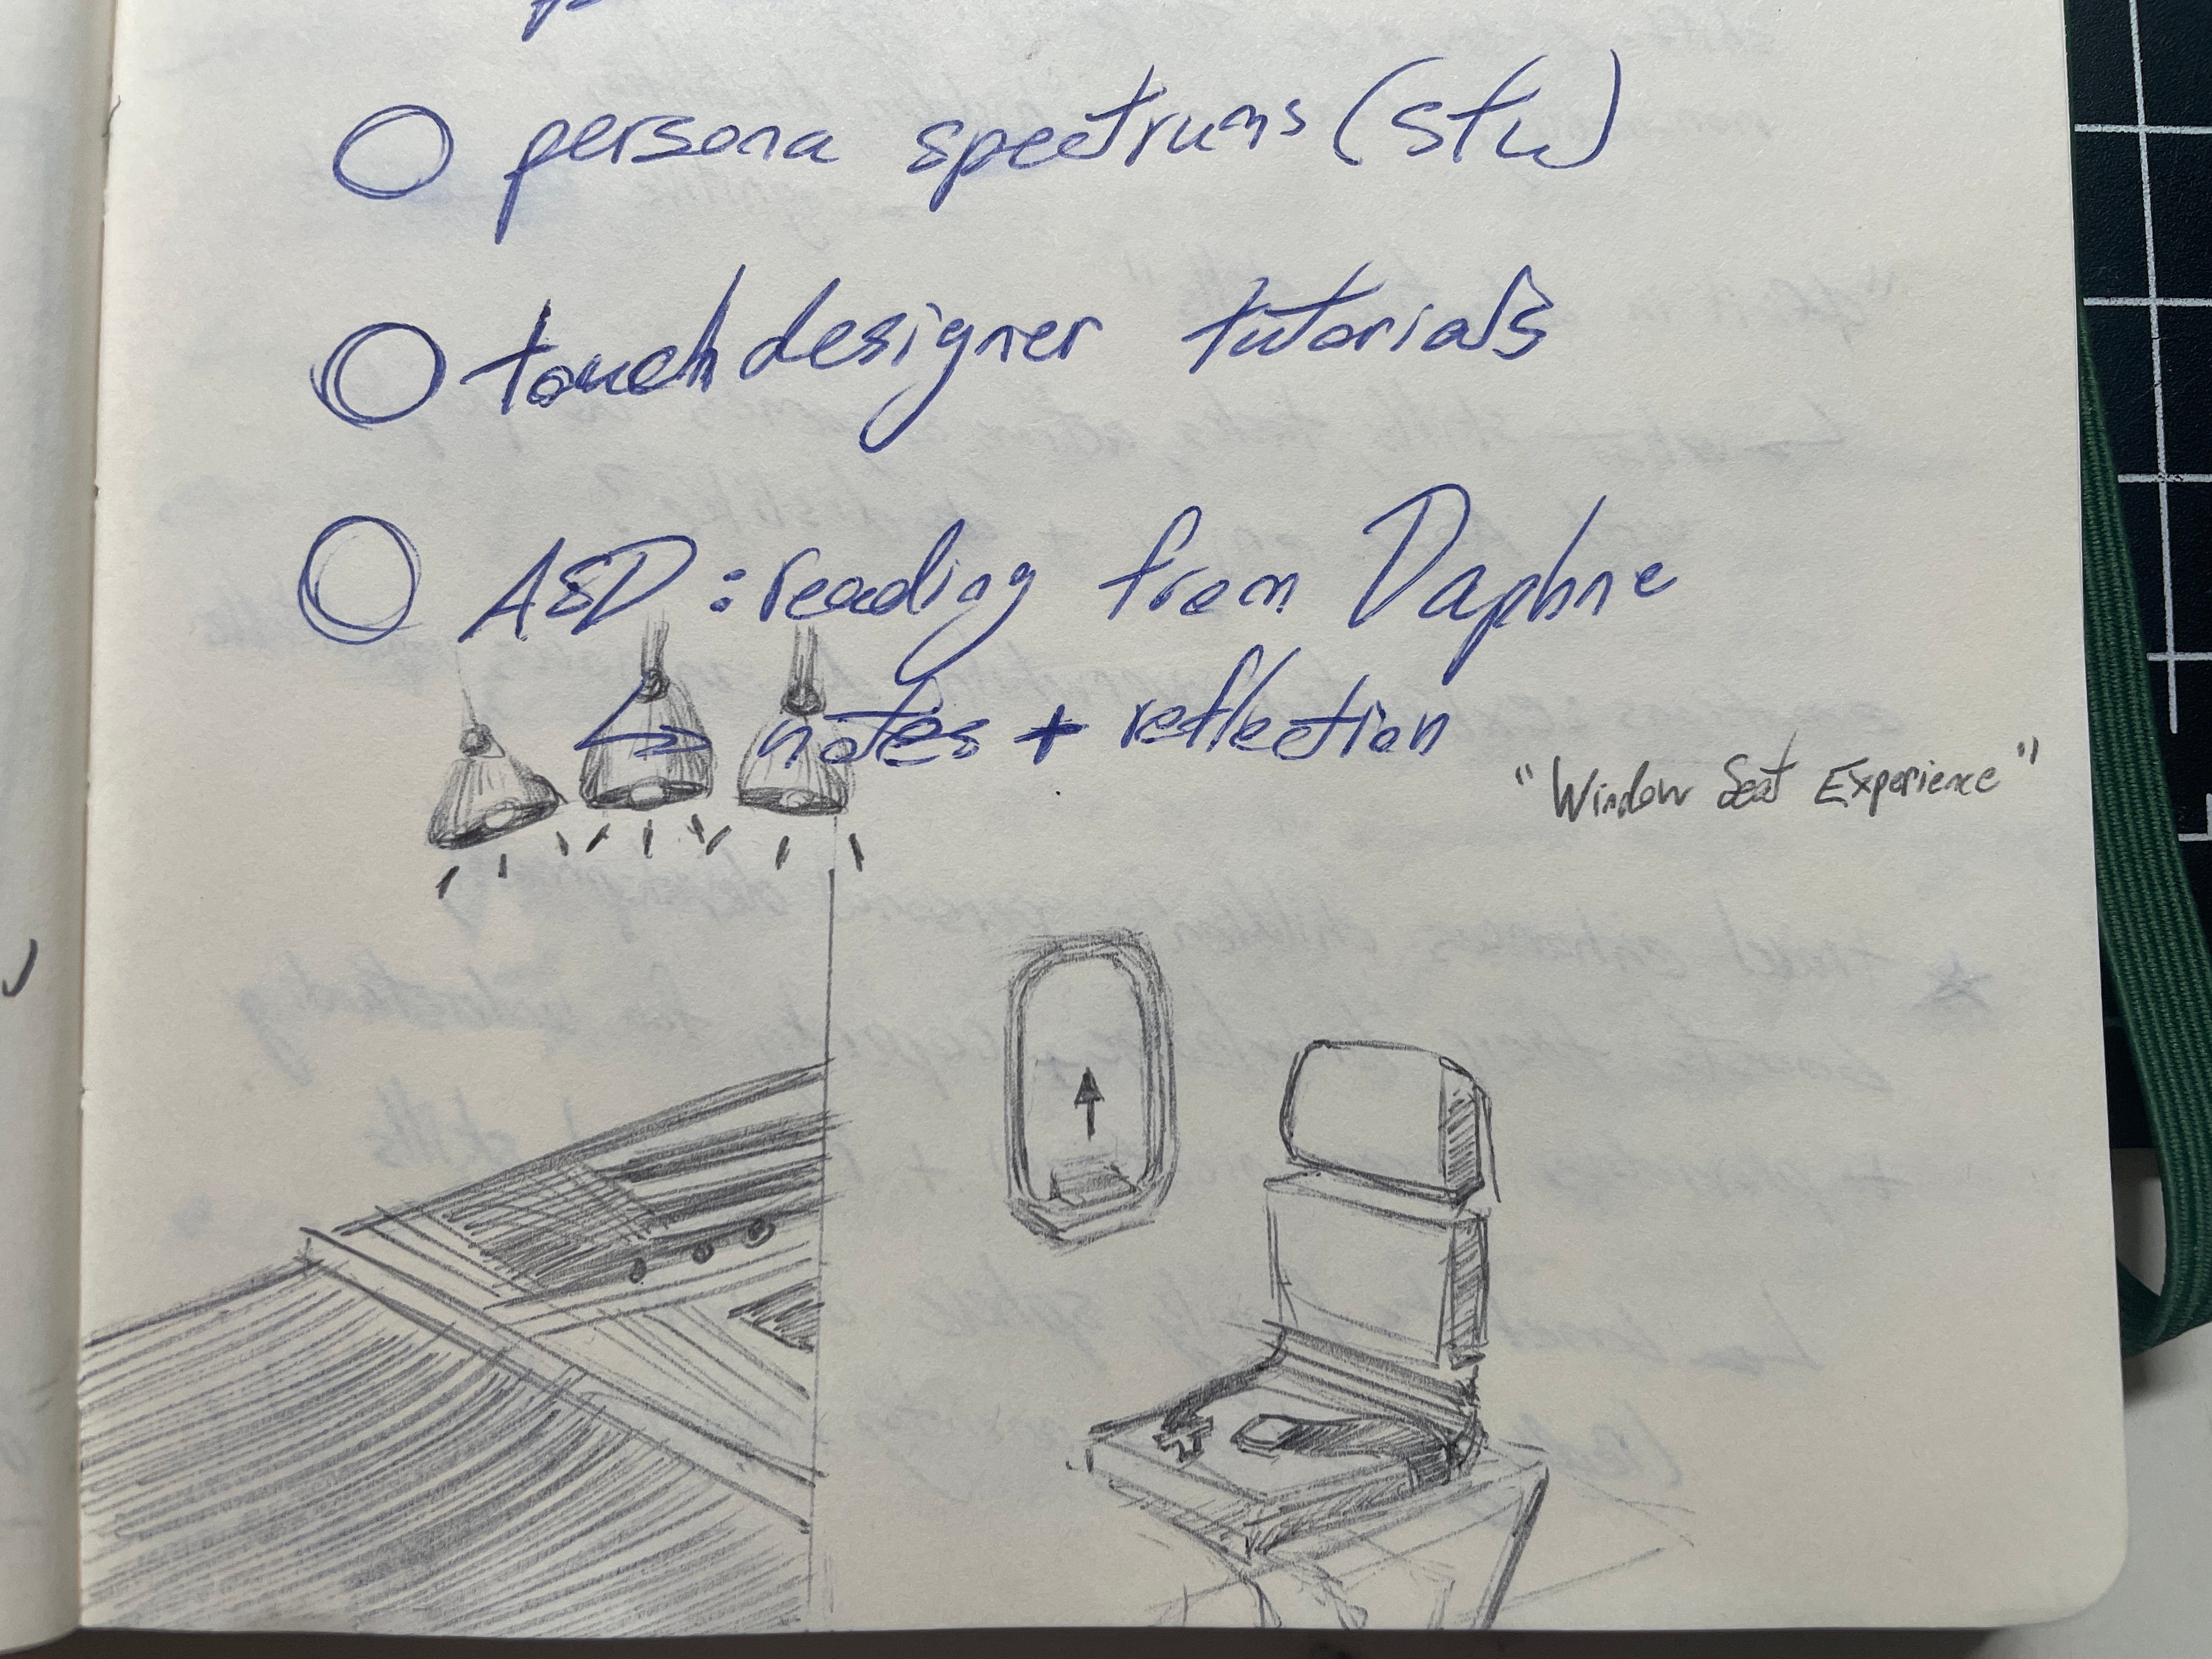 persona spectrums (stw)
touchdesigner tutorials
ASD: reading from Daphne
↳ notes + reflection
"Window Seat Experience"